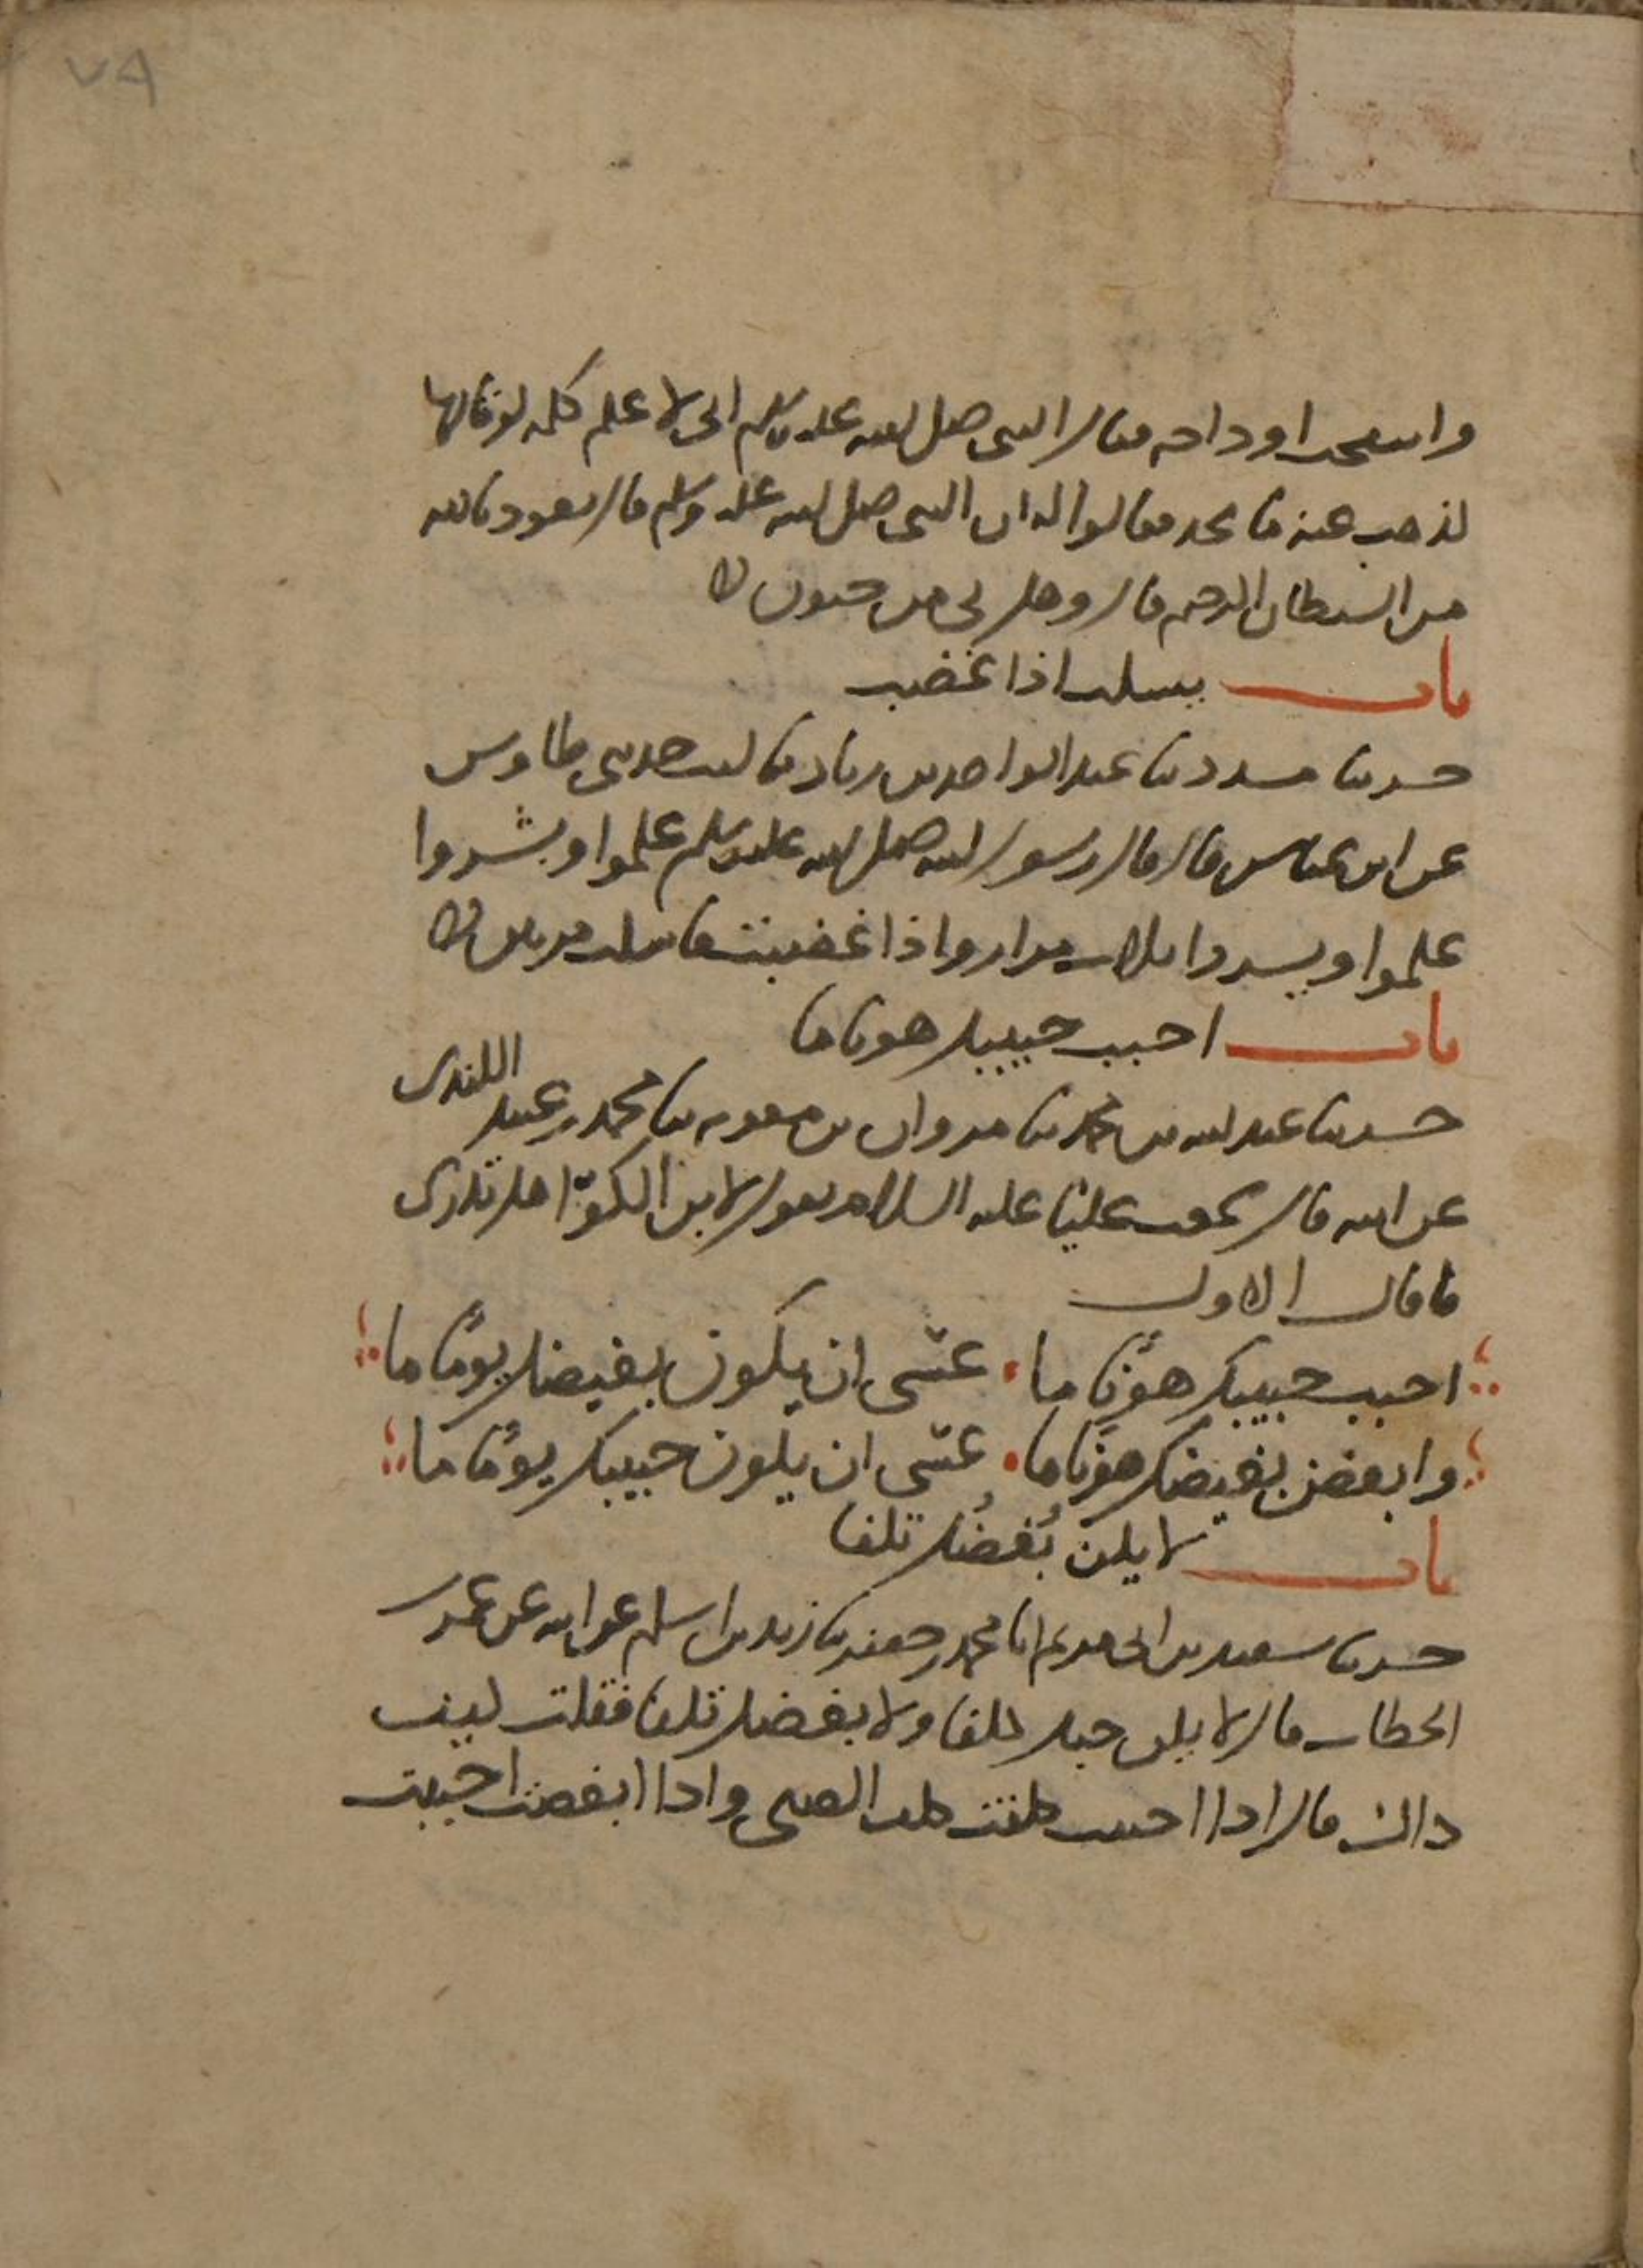 ٧٨
وانتفخت اوداجه فقال النبي صلى الله عليه وسلم اني لا علم كلمه لو قالها
لذهب عنه ما يجد فقالوا له ان النبي صلى الله عليه وسلم قال تعوذ بالله
من الشيطان الرجيم قال وهل بي من جنون
باب يسكت اذا غضب
حدثنا مسدد ثنا عبد الواحد بن زياد ثنا ليث حدثني طاوس
عن ابن عباس قال قال رسول الله صلى الله عليه وسلم علموا وبشروا
علموا ويسروا ثلاث مرار واذا غضبت فاسكت مرتين
باب احبب حبيبك هونا ما
حدثنا عبد الله بن محمد ثنا مروان بن معويه ثنا محمد بن عبيد الكندى
عن ابيه قال سمعت عليّا عليه السلام يقول لابن الكوّا هل تدرى
ما قال الاول
احبب حبيبك هوْنًا ما عسَى ان يكون بغيضك يومًا ما
وابغض بغيضك هونًا ما عسَى ان يكون حبيبك يومًا ما
باب لا يكن بُغضُك تلفا
حدثنا سعيد بن ابى مريم انا محمد بن جعفر ثنا زيد بن اسلم عن ابيه عن عمر بن
الخطاب قال لا يكن حبك كلفا ولا بغضك تلفا فقلت كيف
ذاك قال اذا احببت كلفت كلف الصبي واذا ابغضت احببت